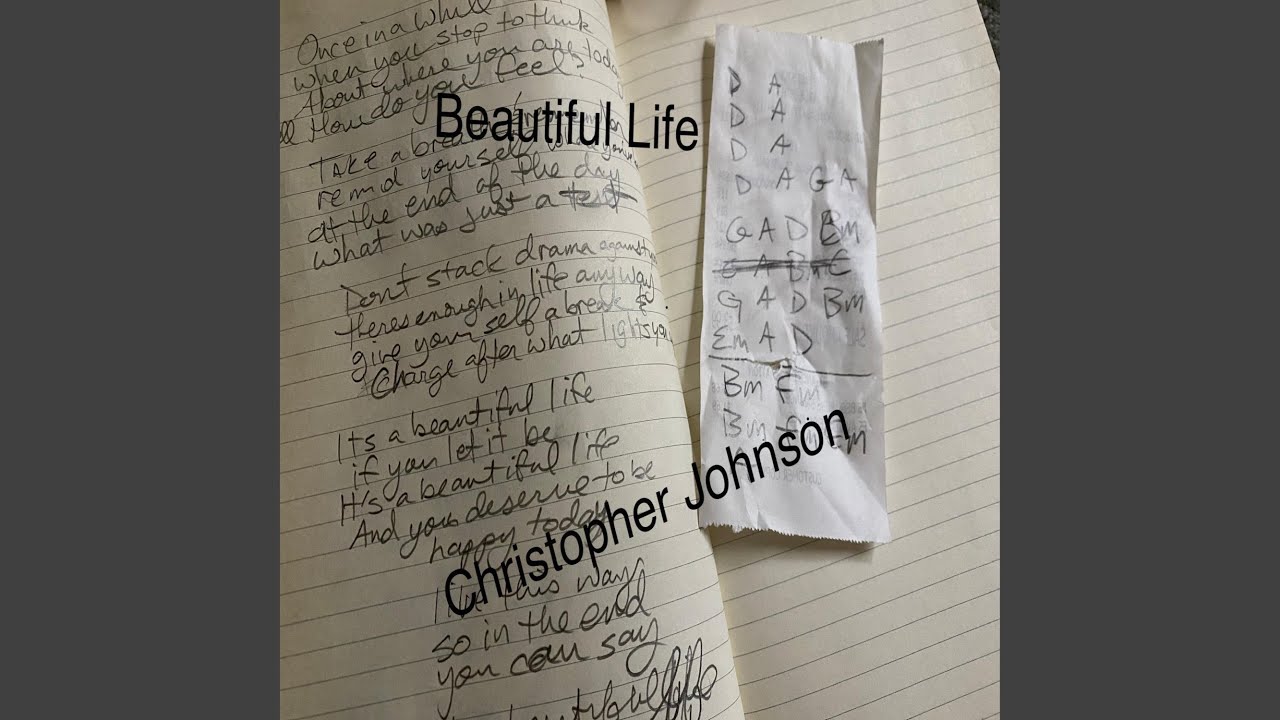 Once in a while
when you stop to think
About where you are today
How do you feel?
Take a breath
remid yourself
at the end of the day
what was just a test
Dont stack drama against
theres enough in life anyway
give your self a break &
Charge after what lights you
Its a beautiful life
if you let it be
It's a beautiful life
And you deserve to be
happy today
this way
so in the end
you can say
beautiful life
Beautiful Life
Christopher Johnson
D A
D A
D A
D A G A
G A D Bm
G A D Bm
Em A D
Bm
Bm Em